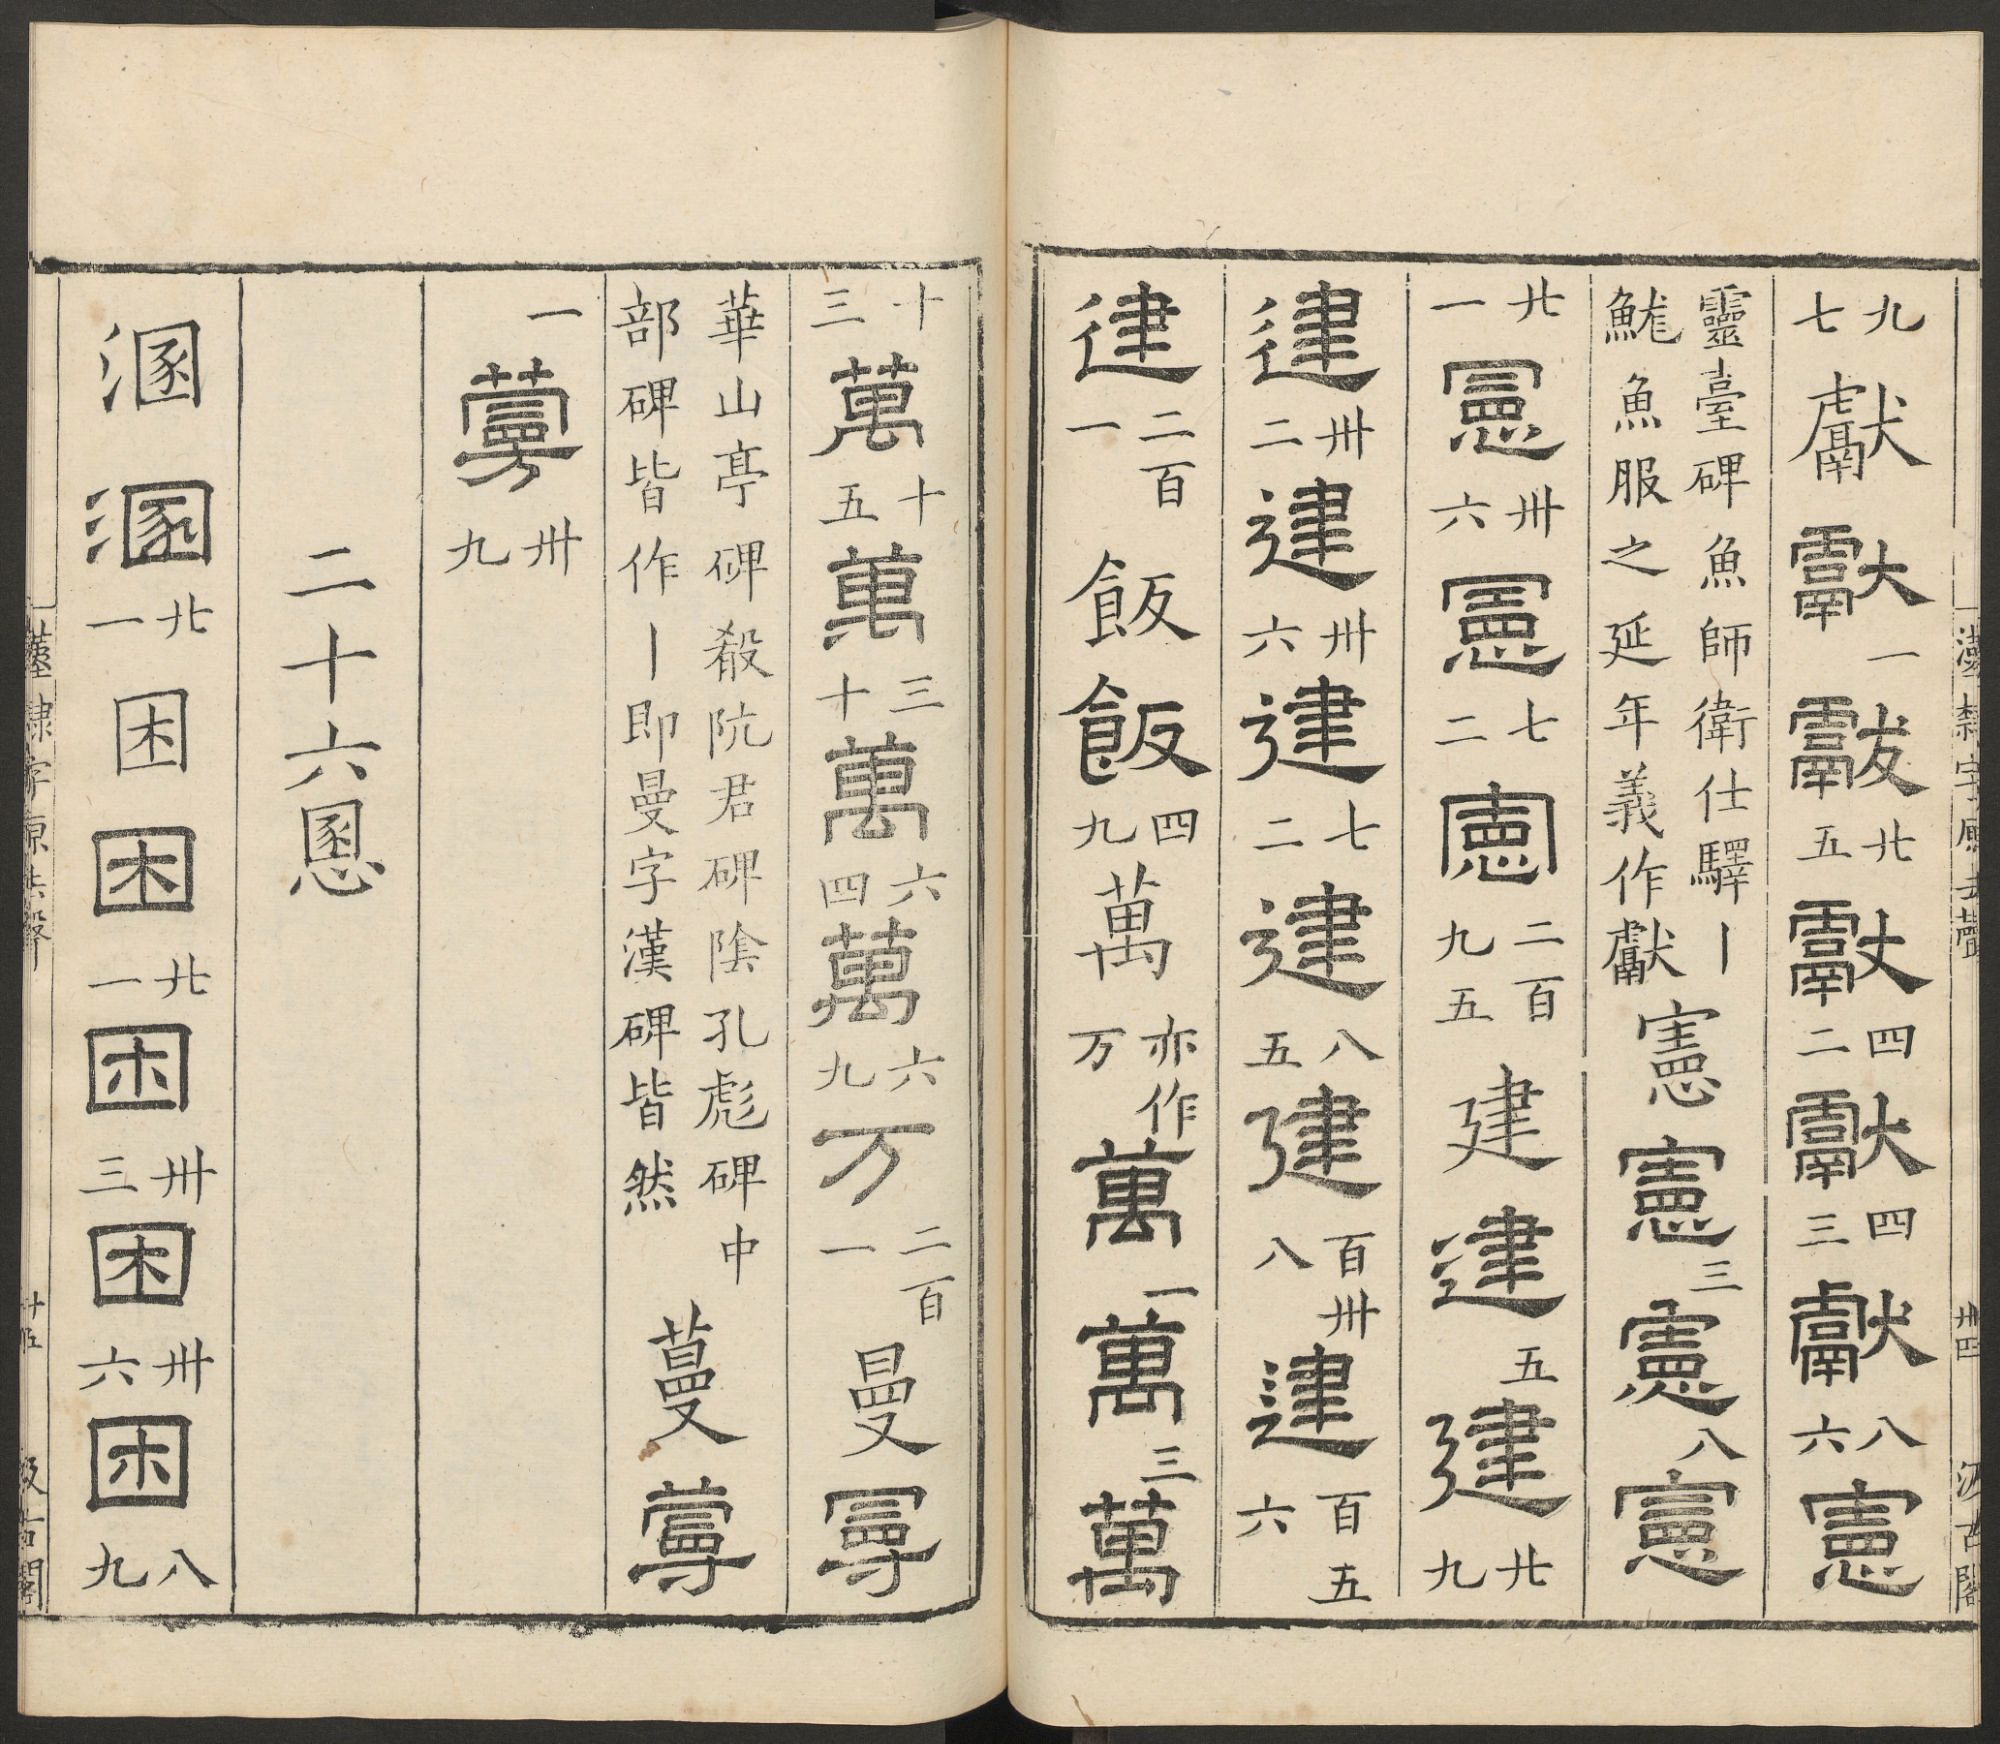 漢隸字原去聲 卅四 汲古閣
九七 獻 獻 一 獻 廿五 獻 四二 獻 四三 獻 八六 憲
靈臺碑魚師衛仕驛丨
魚服之延年義作獻 憲 憲 三 憲 八 憲
廿一 憲 卅六 憲 七二 憲 二百九五 建 建 五 建 廿九
建 卅二 建 卅六 建 七二 建 八五 建 百卅八 建 百五六
建 二百一 飯 飯 四九 萬 亦作万 萬 一 萬 三 萬
十三 萬 十五 萬 三十 萬 六四 萬 六九 万 二百一 曼 曼
華山亭碑殽阬君碑陰孔彪碑中
部碑皆作丨即曼字漢碑皆然 蔓 蔓
一 蔓 卅九
二十六慁
溷 溷 廿一 困 困 廿一 困 卅三 困 卅六 困 八九
漢隸字原去聲 卅五 汲古閣